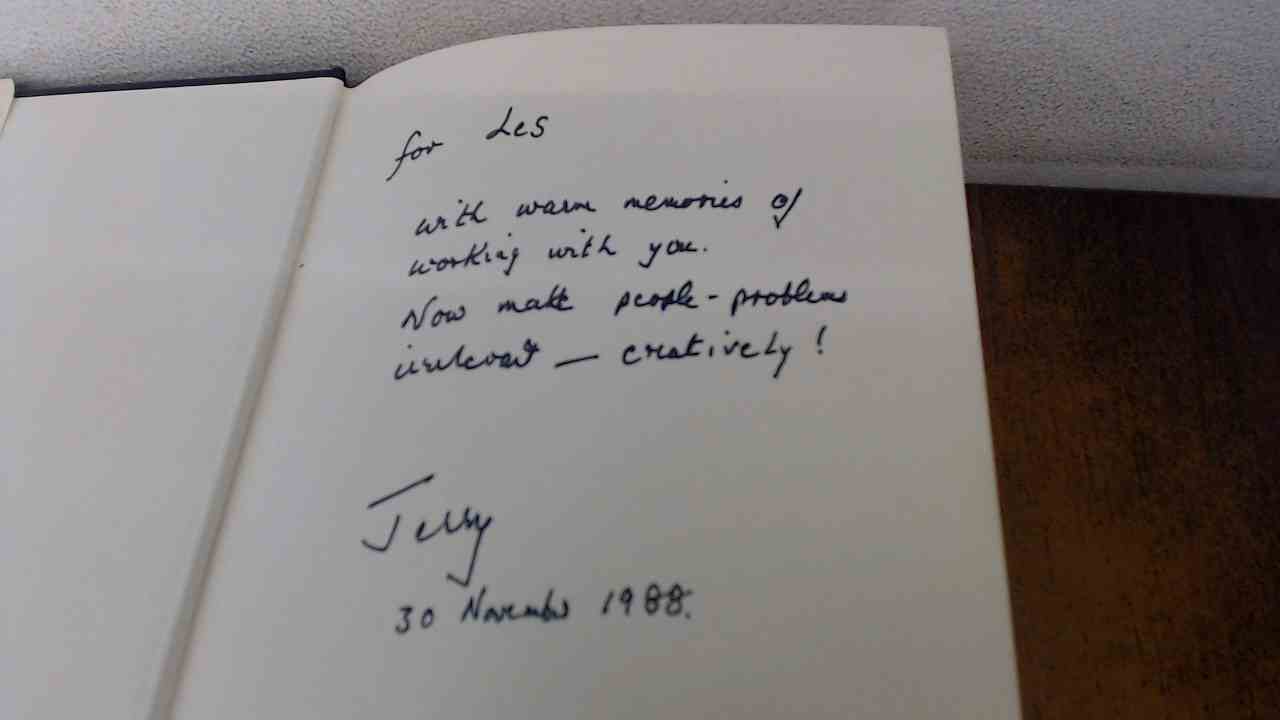 for Les
with warm memories of
working with you.
Now make people-problems
irrelevant — creatively!
Jerry
30 November 1988.